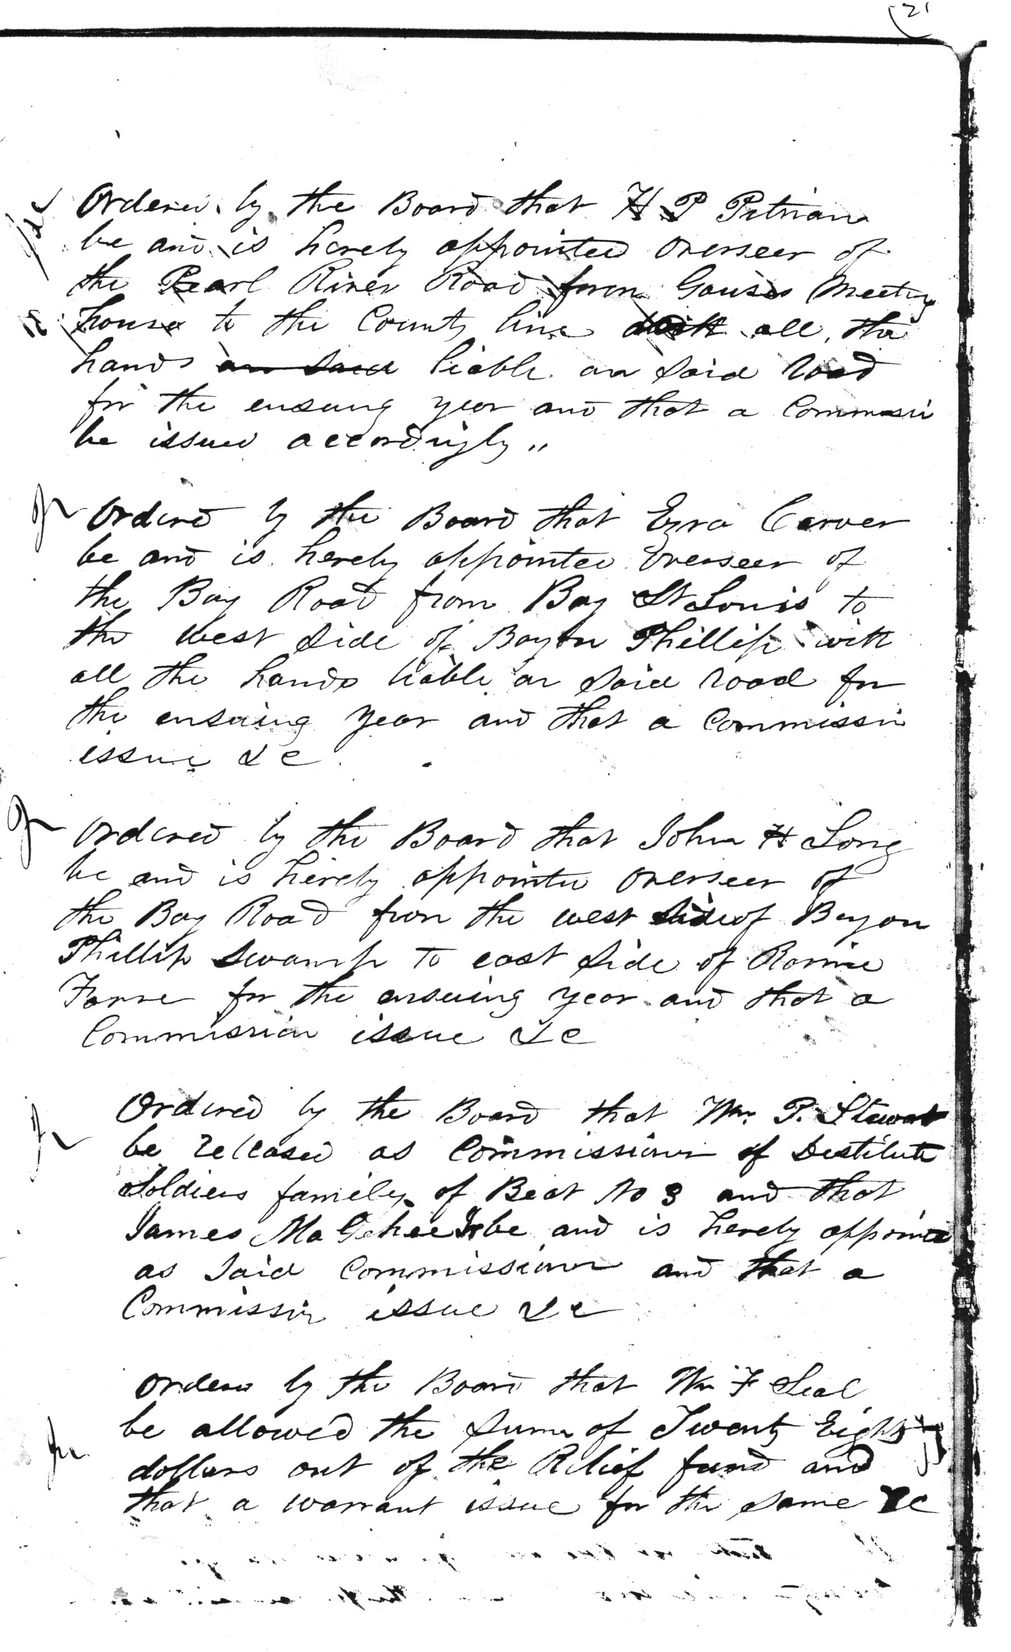 21
Ordered by the Board that H P Pitman
be and is hereby appointed overseer of
the Pearl River Road from Gauses Meeting
house to the County line with all the
hands on said liable on said Road
for the ensuing year and that a Commissin
be issued accordingly "
Ordered by the Board that Ezra Carver
be and is hereby appointed overseer of
the Bay Road from Bay St Louis to
the West side of Bayou Phillip with
all the hands liable on said road for
the ensuing year and that a Commissin
issue &c
Ordered by the Board that John H Long
be and is hereby appointed overseer of
the Bay Road from the west side of Bayou
Phillip Swamp to east side of
for the ensuing year and that a
Commission issue &c
Ordered by the Board that Wm. P. Stewart
be released as Commissioner of Destitute
Soldiers family of Beat No 3 and that
James McGehee be and is hereby appointed
as said Commissioner and that a
Commissin issue &c
Orderd by the Board that Wm F Seal
be allowed the sum of Twenty Eight
dollars out of the Relief fund and
that a warrant issue for the same &c